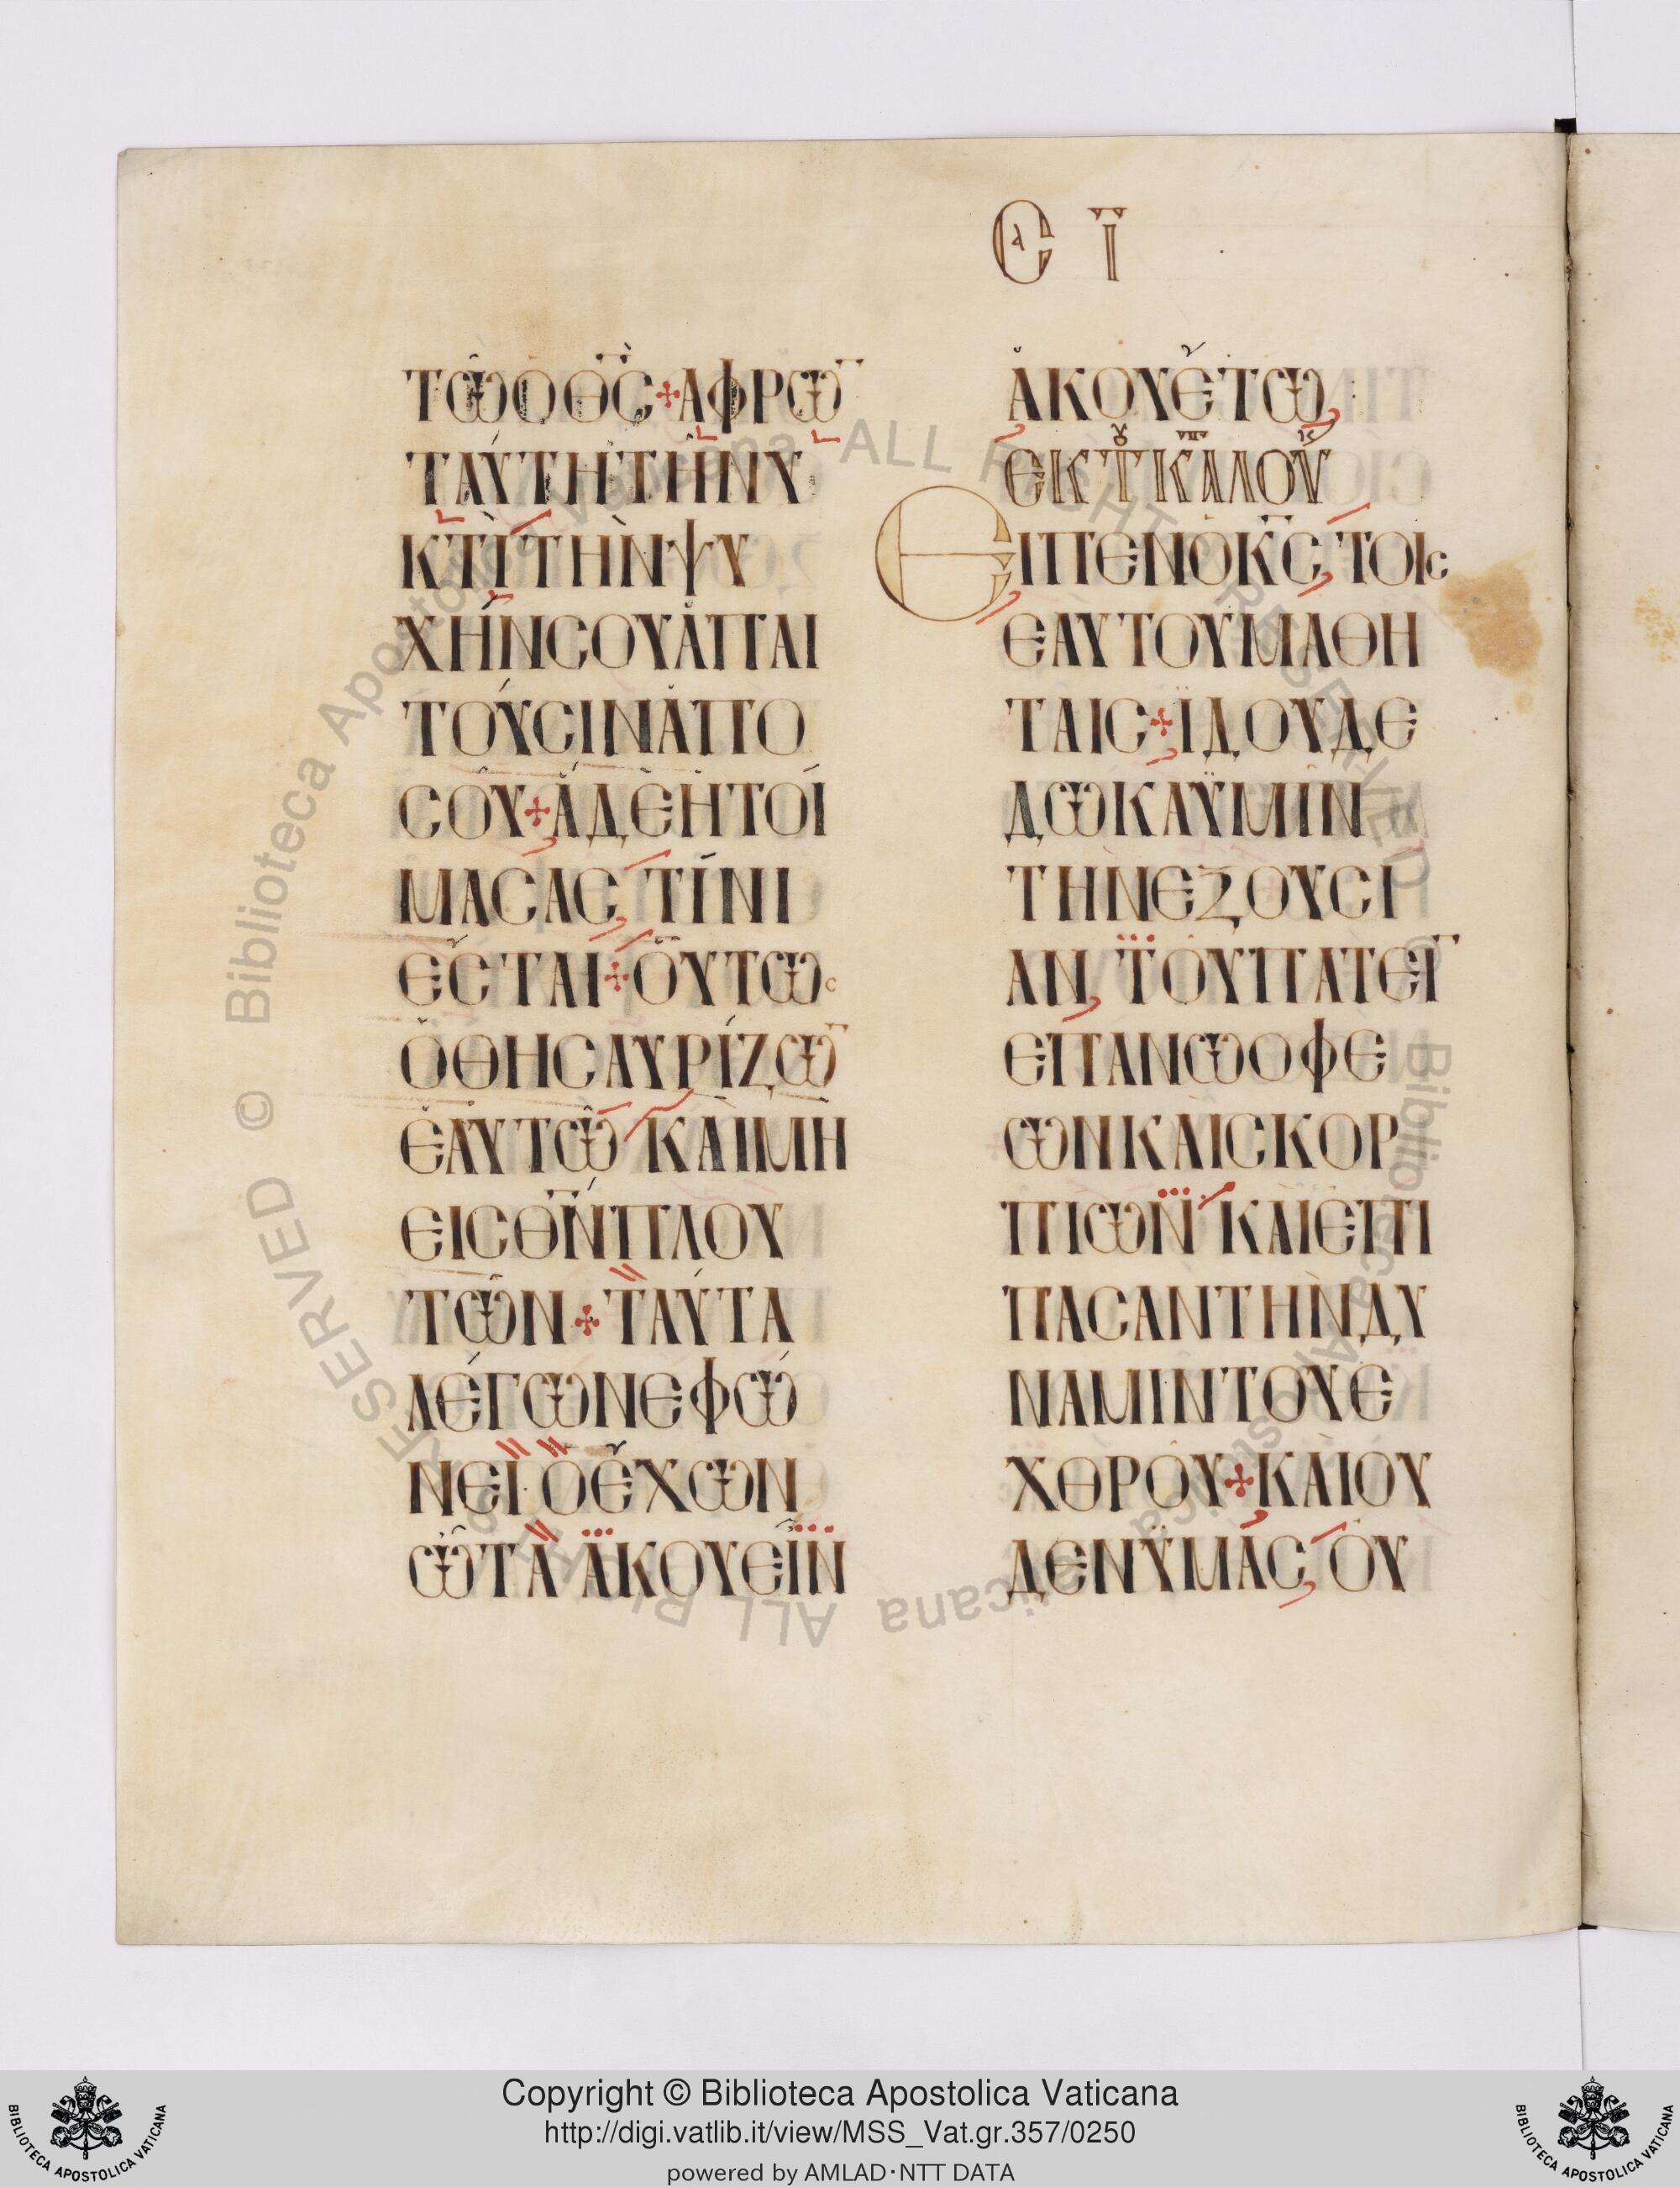 Ε λ Ϊ
ΤΩ Ο ΘC + ΑΦΡΩ‾
ΤΑΥΤΗ ΤΗ ΝΥ
ΚΤΙ ΤΗΝ ΨΥ
ΧΗΝ CΟΥ ΑΠΑΙ
ΤΟΥCΙΝ ΑΠΟ
CΟΥ + Α ΔΕ ΗΤΟΙ
ΜΑCΑC ΤΙΝΙ
ΕCΤΑΙ + ΟΥΤΩC
Ο ΘΗCΑΥΡΙΖΩ‾
ΕΑΥΤΩ ΚΑΙ ΜΗ
ΕΙC ΘΝ ΠΛΟΥ
ΤΩΝ + ΤΑΥΤΑ
ΛΕΓΩΝ ΕΦΩ
ΝΕΙ· Ο ΕΧΩΝ
ΩΤΑ ΑΚΟΥΕΙΝ
ΑΚΟΥΕΤΩ
ΕΚ Τ ΚΑΛΟΥ
ΕΙΠΕΝ Ο ΚC ΤΟΙC
ΕΑΥΤΟΥ ΜΑΘΗ
ΤΑΙC + ΪΔΟΥ ΔΕ
ΔΩΚΑ ΫΜΙΝ
ΤΗΝ ΕΞΟΥCΙ
ΑΝ, ΤΟΥ ΠΑΤΕΙ‾
ΕΠΑΝΩ ΟΦΕ
ΩΝ ΚΑΙ CΚΟΡ
ΠΙΩΝ ΚΑΙ ΕΠΙ
ΠΑCΑΝ ΤΗΝ ΔΥ
ΝΑΜΙΝ ΤΟΥ Ε
ΧΘΡΟΥ + ΚΑΙ ΟΥ
ΔΕΝ ΫΜΑC ΟΥ
© Biblioteca Apostolica Vaticana ALL RIGHTS RESERVED © Biblioteca Apostolica Vaticana ALL RIGHTS RESERVED
Copyright © Biblioteca Apostolica Vaticana
http://digi.vatlib.it/view/MSS_Vat.gr.357/0250
powered by AMLAD·NTT DATA
BIBLIOTECA APOSTOLICA VATICANA
BIBLIOTECA APOSTOLICA VATICANA